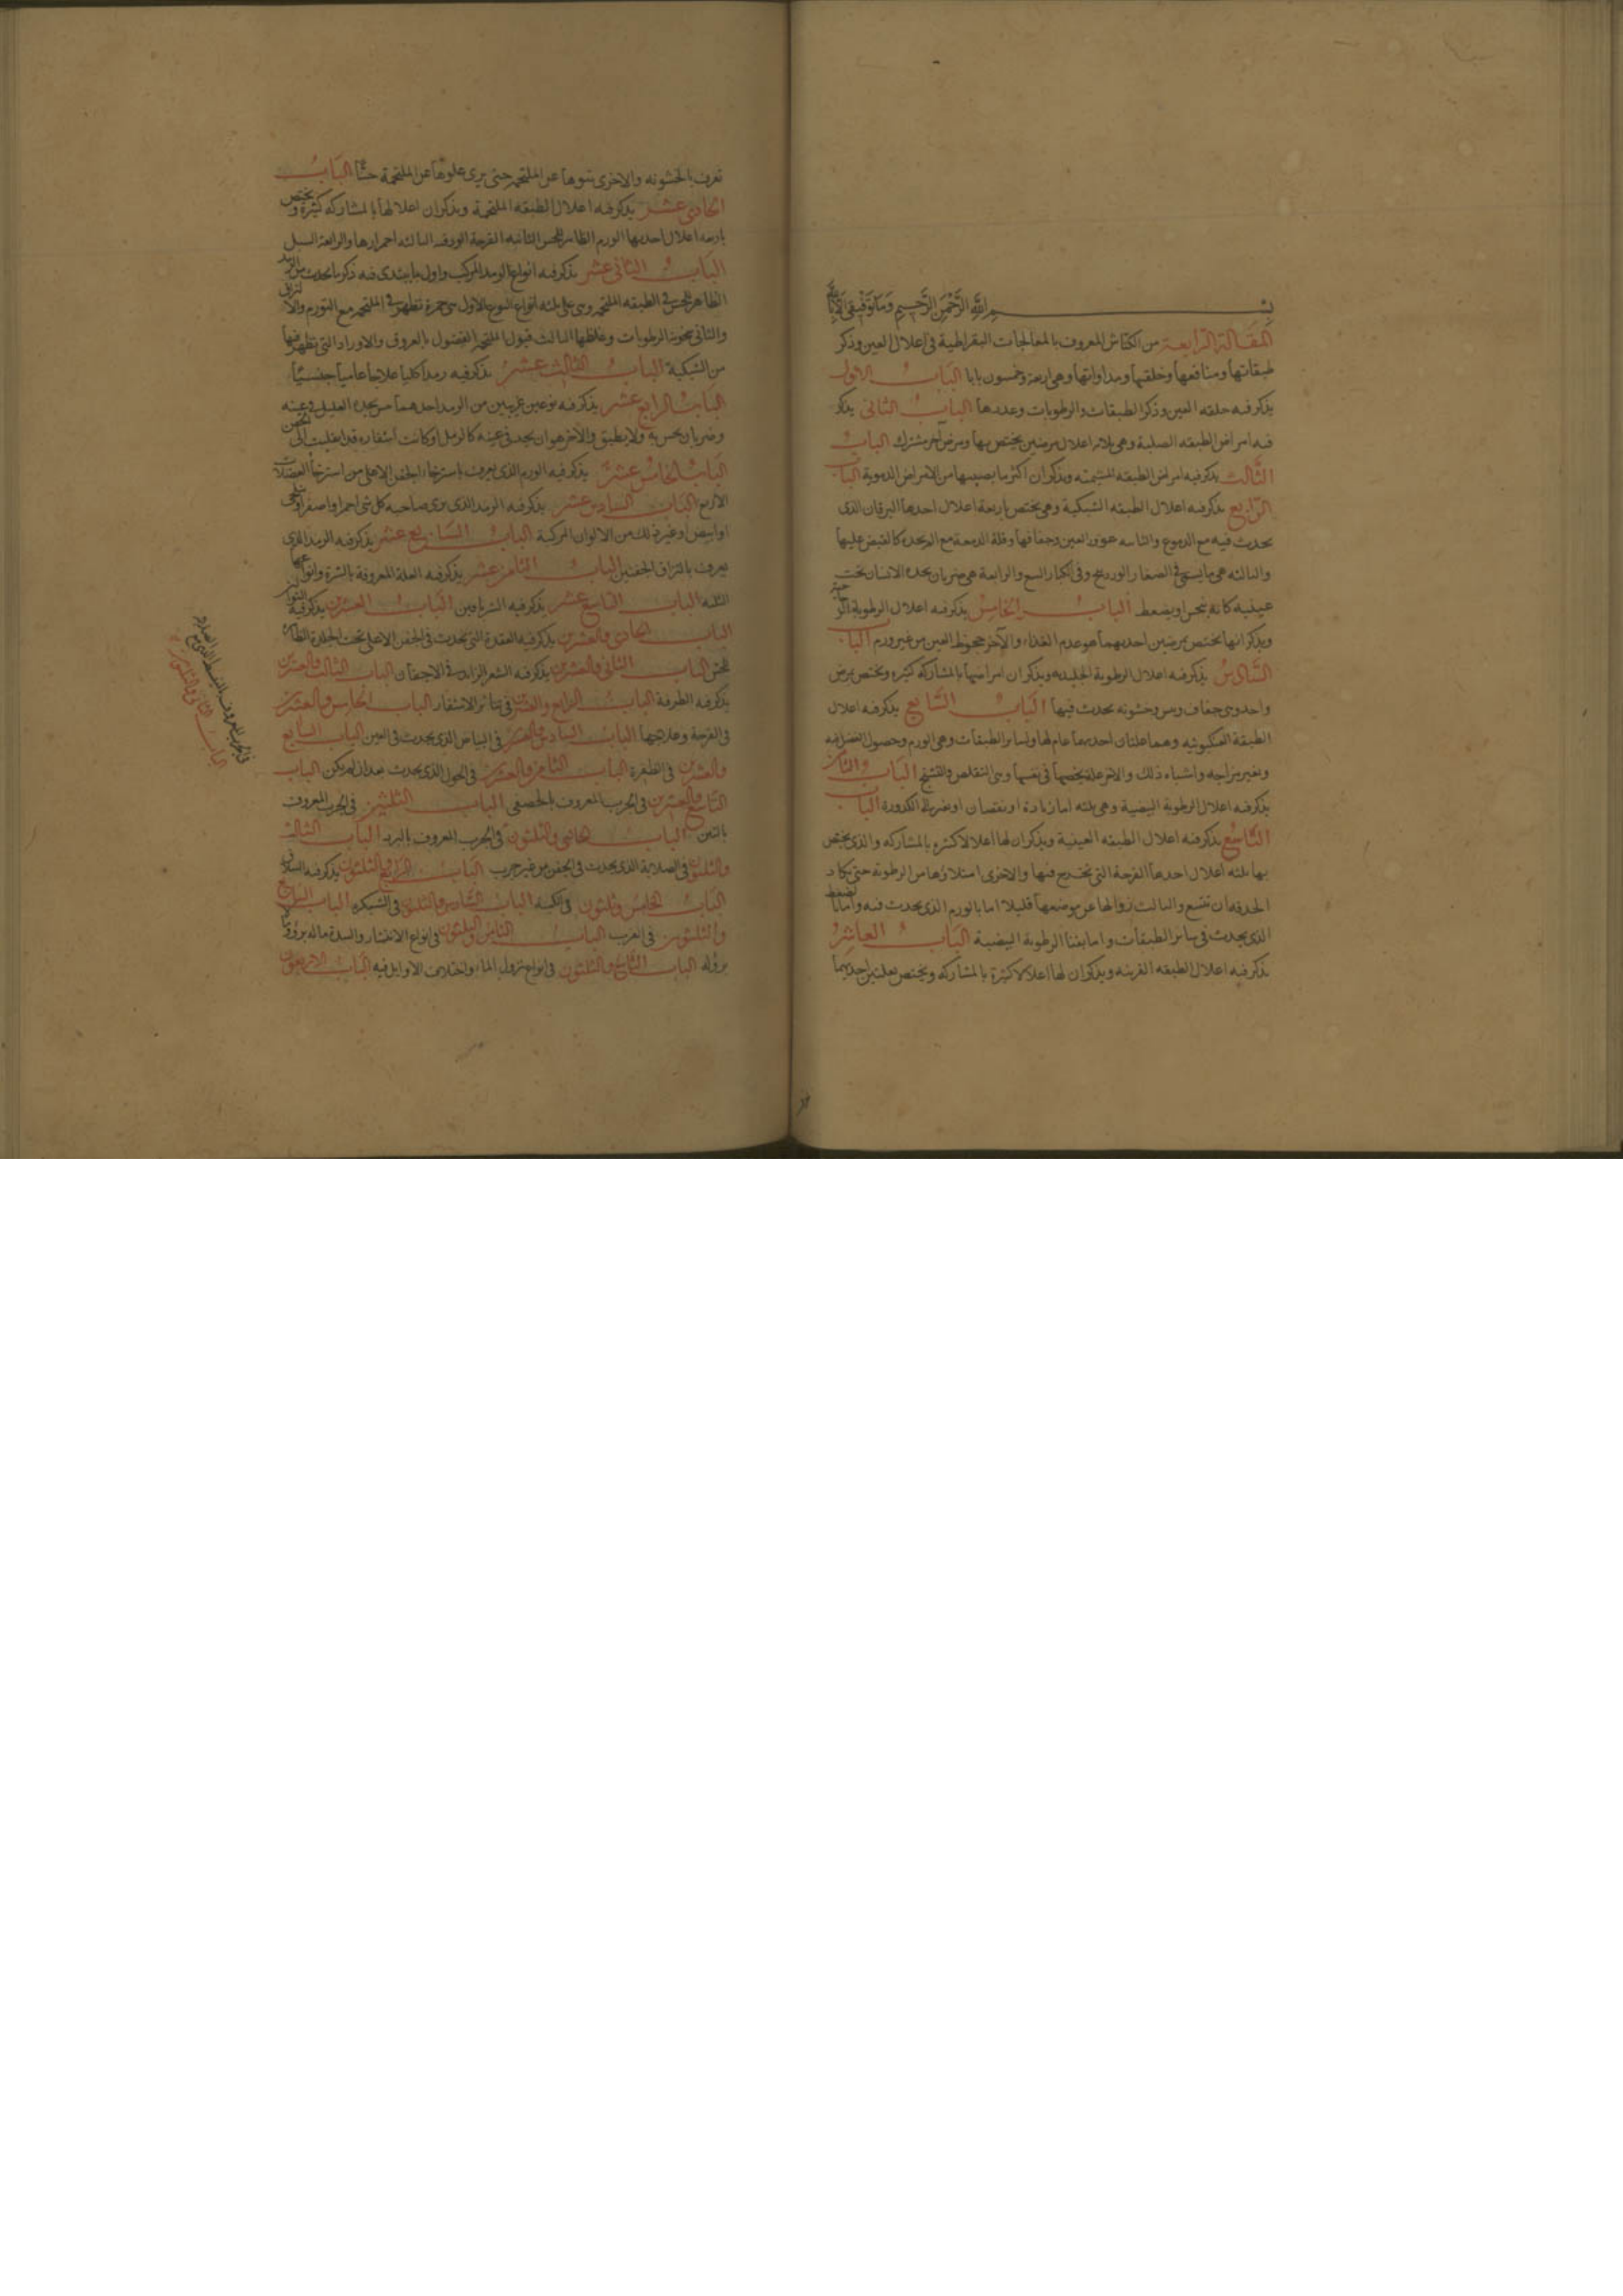 بسم الله الرحمن الرحيم وما توفيقي الا بالله
المقالة الرابعة من الكناش المعروف بالمعالجات البقراطية في اعلال العين وذكر
طبقاتها ومنافعها وخلقتها ومداواتها وهي اربعة وخمسون بابا الباب الاول
يذكر فيه خلقه العين وذكر الطبقات والرطوبات وعددها الباب الثاني يذكر
فيه امراض الطبقه الصلبة وهي ثلاثه اعلال مرضين يختص بها ومرض آخر مشترك الباب
الثالث يذكر فيه امراض الطبقه المشيمة ويذكر ان اكثر ما يصيبها من الامراض الدموية الباب
الرابع يذكر فيه اعلال الطبقه الشبكية وهي يختص باربعة اعلال احدها اليرقان الذي
يحدث فيه مع الدموع والثانيه غؤور العين وجفافها وقلة الدمعة مع الم يجده كالقبض عليها
والثالثه هي ما يسمى في الصغار الوردينج وفي الكبار والرابعة هي ضربان يجده الانسان تحت
عينيه كانه ينخس او يضغط الباب الخامس يذكر فيه اعلال الرطوبة الزجاجية
ويذكر انها يختص بمرضين احديهما هو عدم الغذاء والآخر جحوظ العين من غير ورم الباب
السادس يذكر فيه اعلال الرطوبة الجليديه ويذكر ان امراضها بالمشاركة كثيره ويختص بمرض
واحد وهي جفاف ويبس وخشونه يحدث فيها الباب السابع يذكر فيه اعلال
الطبقة العنكبوتيه وهما علتان احديهما عام لها ولسائر الطبقات وهي الورم وحصول الفضل فيه
وتغير مزاجه واشباه ذلك والاخر علة يخصها في نفسها وهي التقلص والتشنج الباب الثامن
يذكر فيه اعلال الرطوبة البيضية وهي ثلثه اما زيادة او نقصان او تضرب الى الكدورة الباب
التاسع يذكر فيه اعلال الطبقه العنبية ويذكر ان لها اعلالا كثيره بالمشاركه والذي يختص
بها ثلثه اعلال احدها القرحة التي تخرج فيها والاخرى امتلاؤها من الرطوبة حتى تكاد
الحدقه ان تتسع والثالث زوالها عن موضعها قليلا اما بالورم الذي يحدث فيه واما بالضغط
الذي يحدث في سائر الطبقات واما بفنا الرطوبة البيضية الباب العاشر
يذكر فيه اعلال الطبقه القرنيه ويذكر ان لها اعلالا كثيرة بالمشاركه ويختص بعلتين احديهما
تعرف بالخشونه والاخرى بنتوها عن الملتحم حتى يرى علوها عن الملتحمة حسا الباب
الحادي عشر يذكر فيه اعلال الطبقه الملتحمة ويذكر ان اعلالها بالمشاركه كثيرة ويختص
باربعه اعلال احديها الورم الظاهر للحس الثانيه القرحة الثالثه احمرارها والرابعة السبل
الباب الثاني عشر يذكر فيه انواع الرمد المركب واول ما يبتدى فيه ذكر ما يحدث من الرمد
الظاهر للحس في الطبقه الملتحمه وهي على ثلثه انواع النوع الاول هي حمرة تظهر في الملتحم مع التورم
والثاني الرطوبات وغلظها الثالث قبول الملتحم الفضول بالعروق والاوراد التي تظهر فيها
من الشبكية الباب الثالث عشر يذكر فيه رمدا كليا علاجا عاميا جنسيا
الباب الرابع عشر يذكر فيه نوعين غريبين من الرمد احدهما حر يجده العليل في عينه
وضربان يحس به ولا يطيق والاخر هو ان يجد في عينه كالرمل او كانت اشفاره قد انقلبت الى
الباب الخامس عشر يذكر فيه الورم الذي يعرف باسترخاء الجفن الاعلى من استرخا العضلات
الاربع الباب السادس عشر يذكر فيه الرمد الذي يرى صاحبه كل شي احمر او اصفر او
او ابيض او غير ذلك من الالوان المركبة الباب السابع عشر يذكر فيه الرمد الذي
يعرف بالتزاق الجفنين الباب الثامن عشر يذكر فيه العلة المعروفة بالشترة وانواعها
الثلثه الباب التاسع عشر يذكر فيه الشرناقين الباب العشرين يذكر فيه التوث
الباب الحادي والعشرين يذكر فيه العقدة التي يحدث في الجفن الاعلى تحت الجلدة الظاهرة
للحس الباب الثاني والعشرين يذكر فيه الشعر الزايد في الاجفان الباب الثالث والعشرين
يذكر فيه الطرفة الباب الرابع والعشرين في تناثر الاشفار الباب الخامس والعشرين
في القرحة وعلاجها الباب السادس والعشرين في البياض الذي يحدث في العين الباب السابع
والعشرين في الظفرة الباب الثامن والعشرين في الحول الذي يحدث بعد ان لم يكن الباب
التاسع والعشرين في الجرب المعروف بالحصفي الباب الثلثين في الجرب المعروف
بالتين الباب الحادي والثلثون في الجرب المعروف بالبرد الباب الثالث
والثلثون في الصلابة الذي يحدث في الجفن من غير جرب الباب الرابع والثلثون يذكر فيه السلاق
الباب الخامس وثلثون في الكمنه الباب السادس والثلثون في الشبكره الباب السابع
والثلثون في الغرب الباب الثامن والثلثون في انواع الانتشار والسدة ما له برؤ وما لا
برؤ له الباب التاسع والثلثون في انواع نزول الماء واختلاف الاوايل فيه الباب الاربعون
الباب الثاني والثلثون